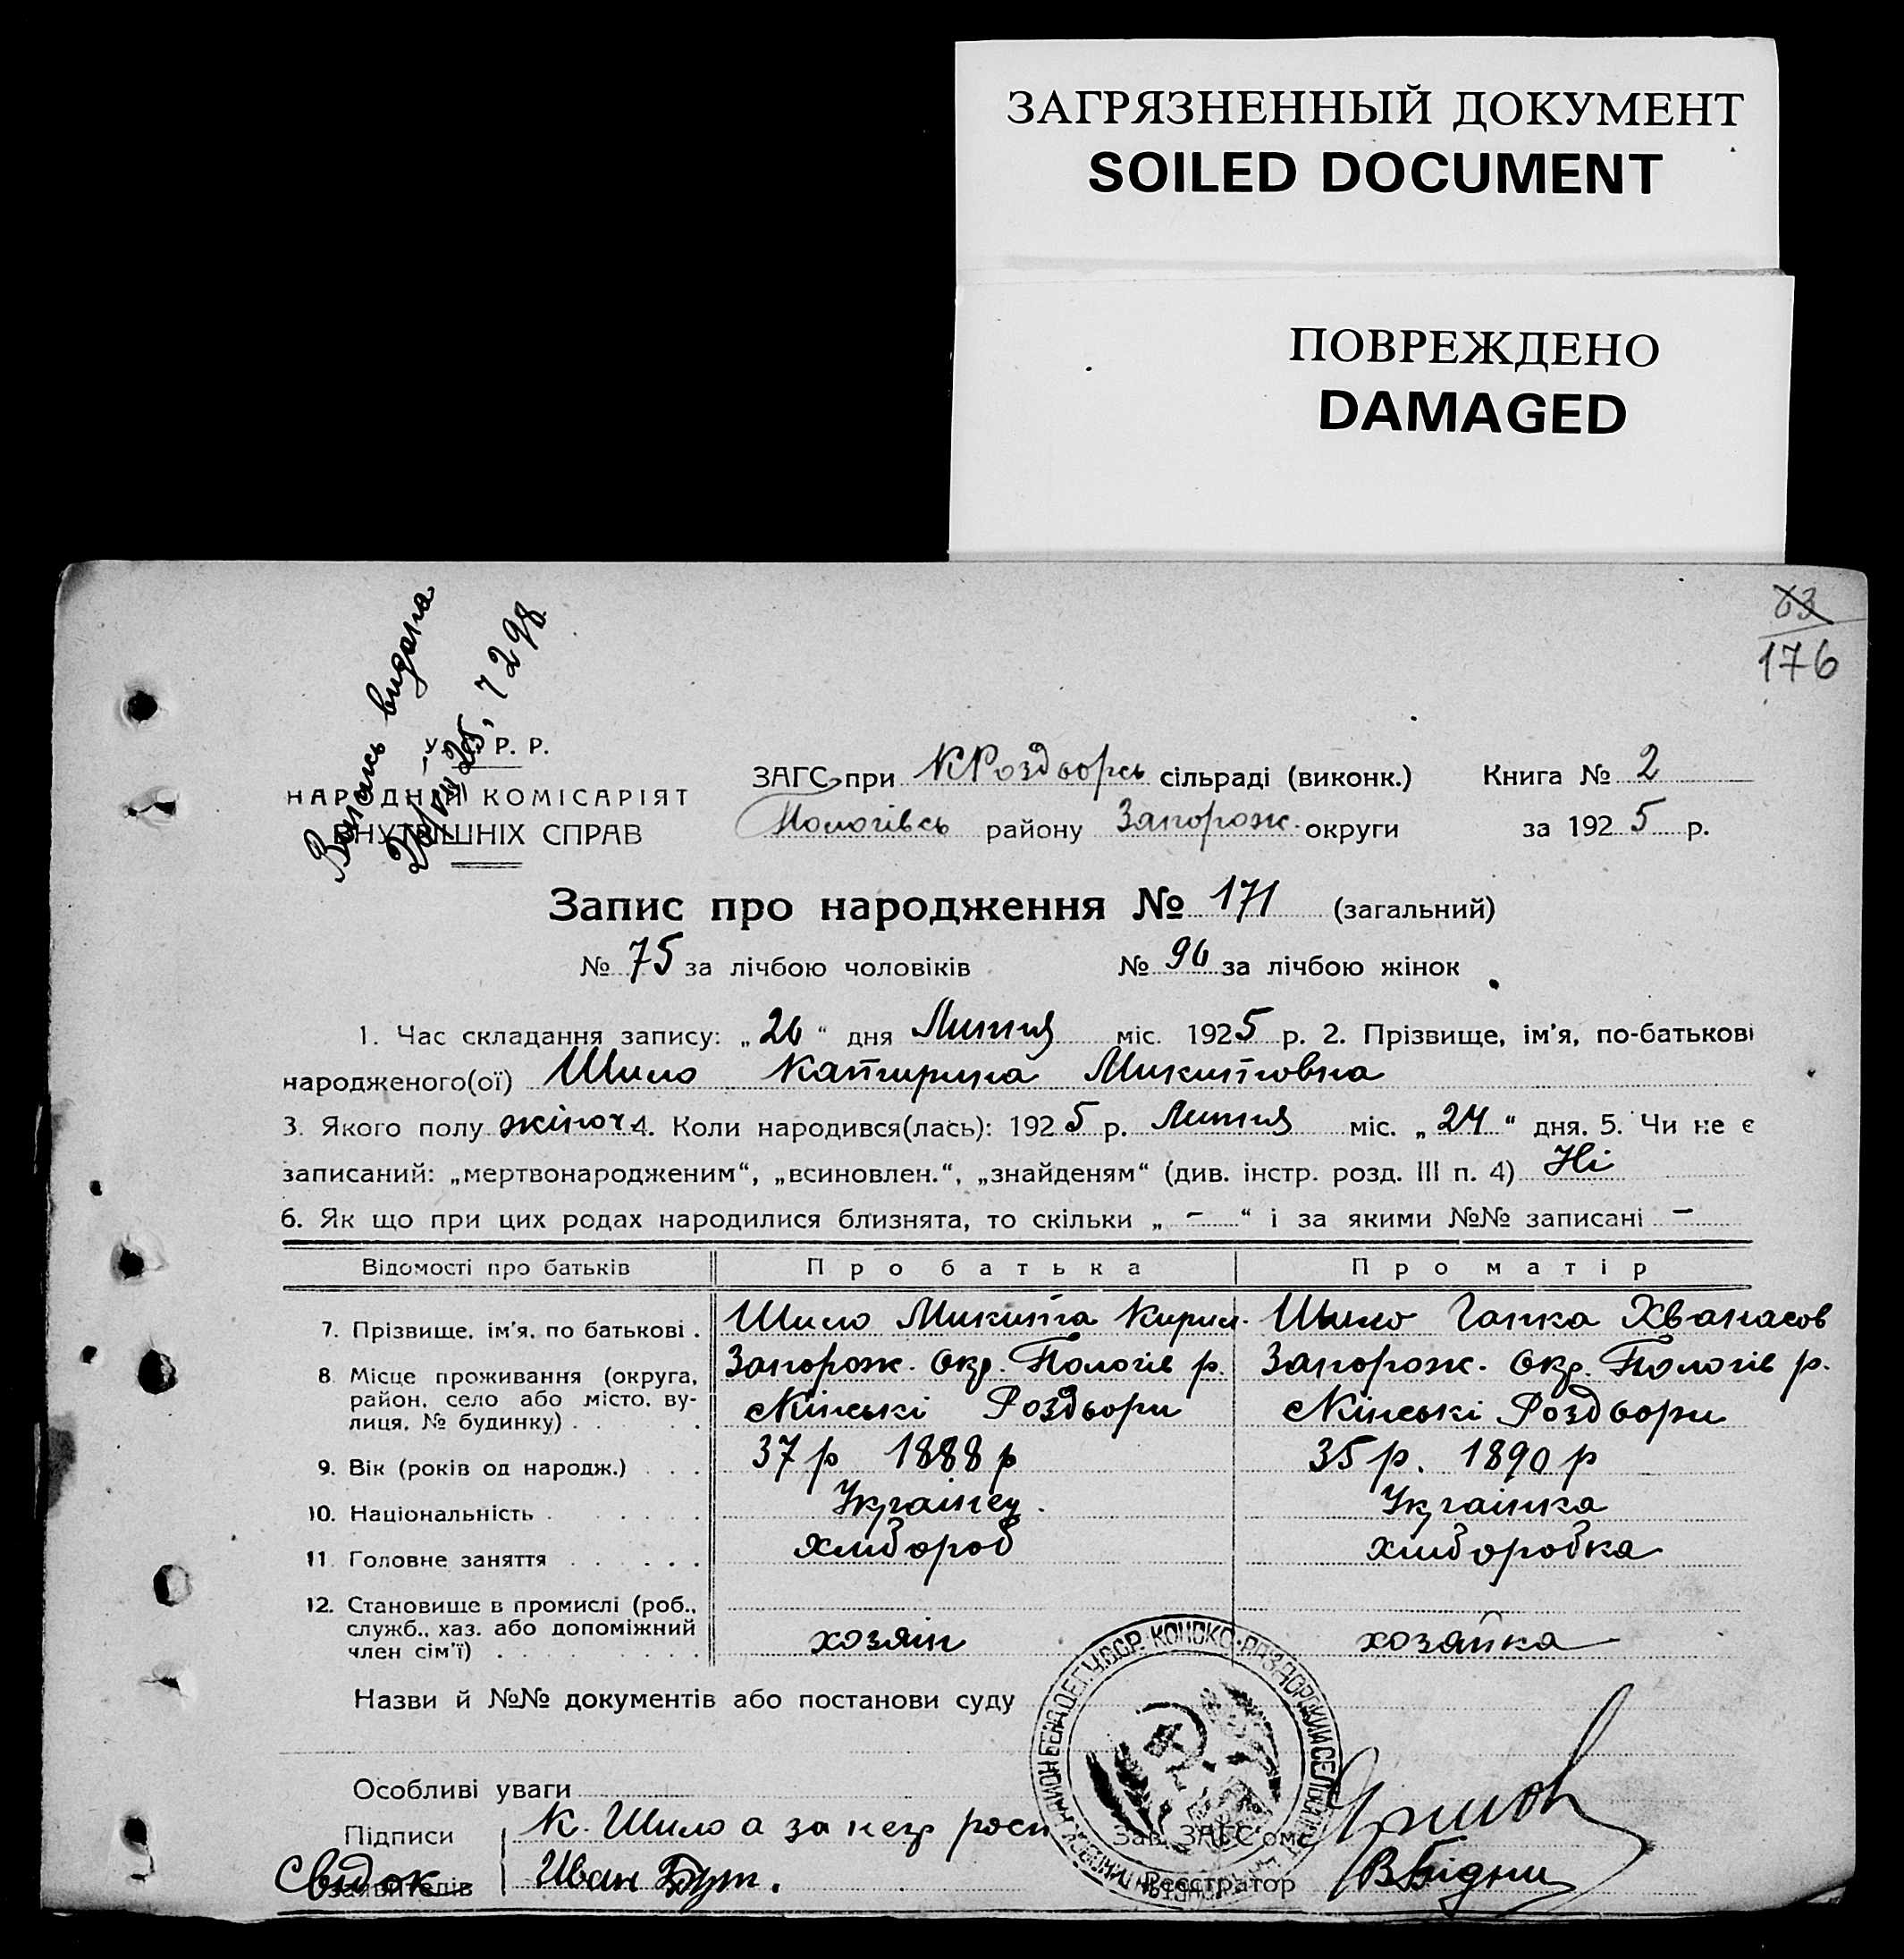 ЗАГРЯЗНЕННЫЙ ДОКУМЕНТ
SOILED DOCUMENT
ПОВРЕЖДЕНО
DAMAGED
63
176
видана
7298
У. Р. Р.
НАРОДНІЙ КОМІСАРІЯТ
ВНУТРІШНІХ СПРАВ
ЗАГС при К Роздорсь сільраді (виконк.) Книга № 2
Пологівсь району Запорож. округи за 1925 р.
Запис про народження № 171 (загальний)
№ 75 за лічбою чоловіків № 96 за лічбою жінок
1. Час складання запису: „26“ дня Липня міс. 1925 р. 2. Прізвище, ім'я, по-батькові
народженого(ої) Шило Катирина Микитовна
3. Якого полу жіноч 4. Коли народився(лась): 1925 р. Липня міс. „24“ дня. 5. Чи не є
записаний: „мертвонародженим“, „всиновлен.“, „знайденям“ (див. інстр. розд. III п. 4) Ні
6. Як що при цих родах народилися близнята, то скільки „ - “ і за якими №№ записані -
Відомості про батьків Про батька Про матір
7. Прізвище, ім'я, по батькові . Шило Микита Кирил. Шило Гапка Хванасов
8. Місце проживання (округа, Запорож. Окр. Пологів р. Запорож. Окр. Пологів р.
район, село або місто, ву- Кінські Роздори Кінські Роздори
лиця, № будинку) . . .
9. Вік (років од народж.) . . . 37 р 1888 р 35 р. 1890 р
10. Національність . . . . . Українец. Українка
11. Головне заняття . . . . . хлибороб хлиборобка
12. Становище в промислі (роб.,
служб., хаз. або допоміжний хозяін хозяйка
член сім'ї) . . . . . . . .
Назви й №№ документів або постанови суду
Особливі уваги
Підписи К. Шило а за нег росп Зав. ЗАГС'ом
Свидок заявителів Иван Бут. Реєстратор В Бідни